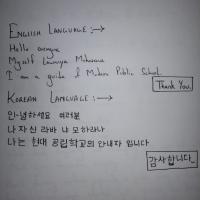 ENGLISH LANGUAGE :→
Hello everyone
Myself
I am a guide & Modern Public School.
Thank You.
KOREAN LANGUAGE :→
안녕하세요 여러분
나 자신 라바 나 모하라나
나는 현대 공립학교의 안내자 입니다
감사합니다.